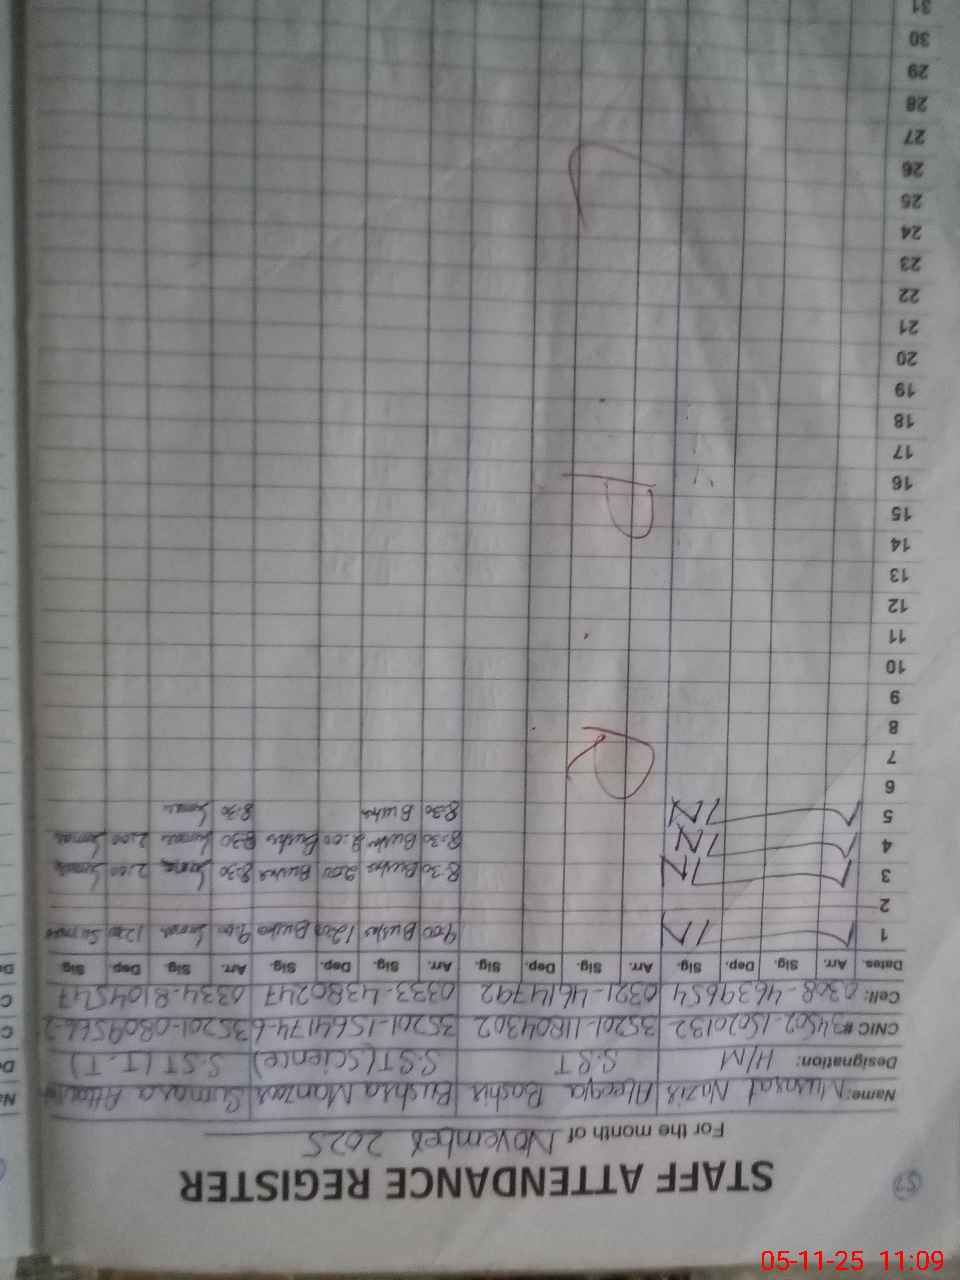 57
STAFF ATTENDANCE REGISTER
For the month of November 2025
Name: Musarat Nazir Aleeqa Bashir Bushra Manzoor Sumara
Designation: H/M S.S.T S.ST (Science) S.ST (I.T)
CNIC # 34502-1502013-2 35201-1180430-2 35201-1564174-6 35201-0809566-2
Cell: 0308-4639654 0321-4614792 0333-4380247 0334-8104547
Dates. Arr. Sig. Dep. Sig. Arr. Sig. Dep. Sig. Arr. Sig. Dep. Sig. Arr. Sig. Dep. Sig.
1 9:00 Bushra 12:00 Bushra 9:00 12:00
2
3 8:30 Bushra 2:00 Bushra 8:30 2:00
4 8:30 Bushra 2:00 Bushra 8:30 2:00
5 8:30 Bushra 8:30
6
7
8
9
10
11
12
13
14
15
16
17
18
19
20
21
22
23
24
25
26
27
28
29
30
31
05-11-25 11:09